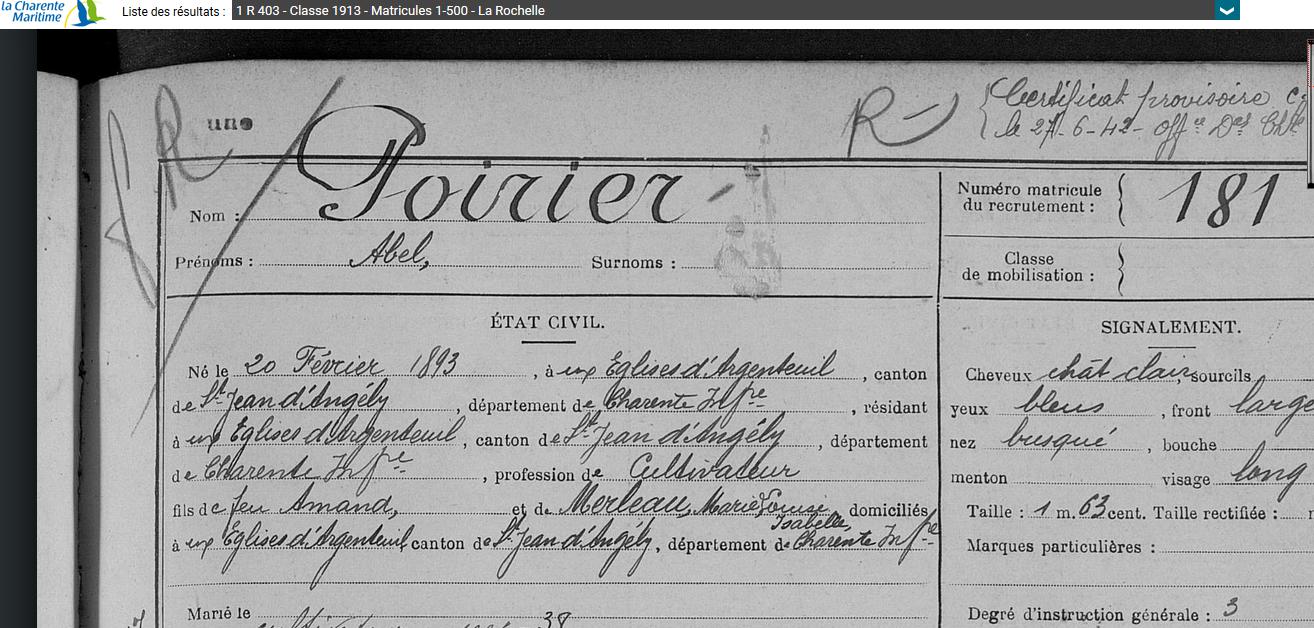 la Charente
Maritime
Liste des résultats : 1 R 403 - Classe 1913 - Matricules 1-500 - La Rochelle
R
uno
R
Certificat provisoire
le 27-6-42- off ce Des
Nom : Poirier
Prénoms : Abel, Surnoms :
Numéro matricule
du recrutement : 181
Classe
de mobilisation :
ÉTAT CIVIL.
Né le 20 Février 1893, à ux Eglises d'Argenteuil, canton
de St Jean d'Angély, département de Charente Infre, résidant
à ux Eglises d'Argenteuil, canton de St Jean d'Angély, département
de Charente Infre, profession de Cultivateur
fils de feu Amand, et de Merleau, Marie Louise Isabelle, domiciliés
à ux Eglises d'Argenteuil canton de St Jean d'Angély, département de Charente Infre
Marié le
38
SIGNALEMENT.
Cheveux chât clair, sourcils
yeux bleus, front large
nez busqué, bouche
menton visage long
Taille : 1 m. 63 cent. Taille rectifiée :
Marques particulières :
Degré d'instruction générale : 3